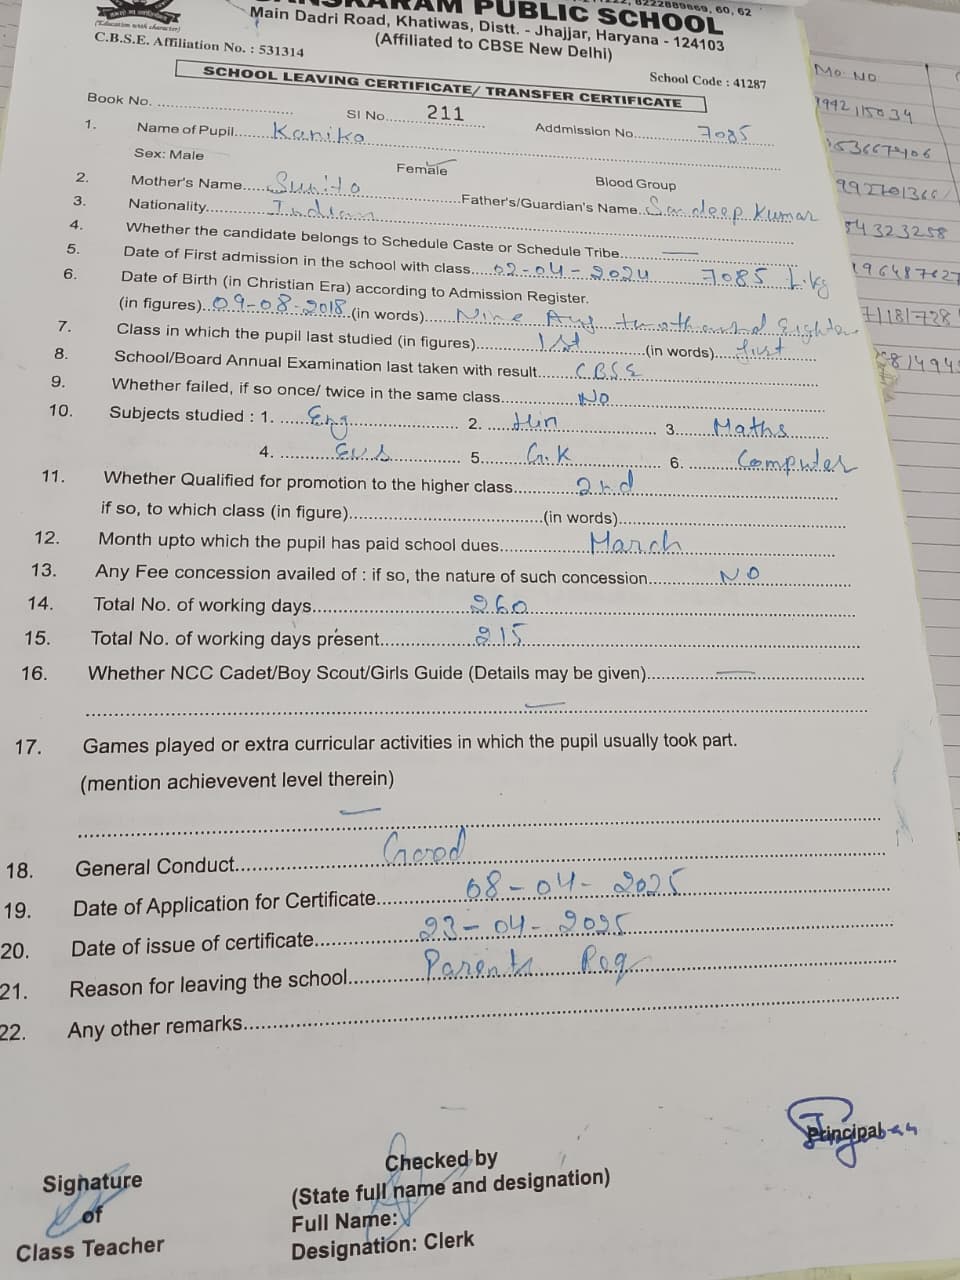 8222889669, 60, 62
PUBLIC SCHOOL
Main Dadri Road, Khatiwas, Distt. - Jhajjar, Haryana - 124103
(Affiliated to CBSE New Delhi)
(Education with character)
C.B.S.E. Affiliation No. : 531314
School Code : 41287
SCHOOL LEAVING CERTIFICATE/ TRANSFER CERTIFICATE
Book No. SI No. 211 Addmission No. 7085
1. Name of Pupil Kanika
Sex: Male Female Blood Group
2. Mother's Name Sunita Father's/Guardian's Name Sandeep Kumar
3. Nationality Indian
4. Whether the candidate belongs to Schedule Caste or Schedule Tribe
5. Date of First admission in the school with class 02-04-2024 7085 L.kg
6. Date of Birth (in Christian Era) according to Admission Register.
(in figures) 09-08-2018 (in words) Nine Aug
7. Class in which the pupil last studied (in figures) 1st (in words) first
8. School/Board Annual Examination last taken with result CBSE
9. Whether failed, if so once/ twice in the same class No
10. Subjects studied : 1. Eng 2. Hin 3. Maths
4. EVS 5. G.K 6. Computer
11. Whether Qualified for promotion to the higher class 2nd
if so, to which class (in figure) (in words)
12. Month upto which the pupil has paid school dues March
13. Any Fee concession availed of : if so, the nature of such concession NO
14. Total No. of working days 260
15. Total No. of working days present 215
16. Whether NCC Cadet/Boy Scout/Girls Guide (Details may be given)
17. Games played or extra curricular activities in which the pupil usually took part.
(mention achievevent level therein)
18. General Conduct Good
19. Date of Application for Certificate 08-04-2025
20. Date of issue of certificate 23-04-2025
21. Reason for leaving the school Parents Req
22. Any other remarks
Principal
Signature
of
Class Teacher
Checked by
(State full name and designation)
Full Name:
Designation: Clerk
Mo. No